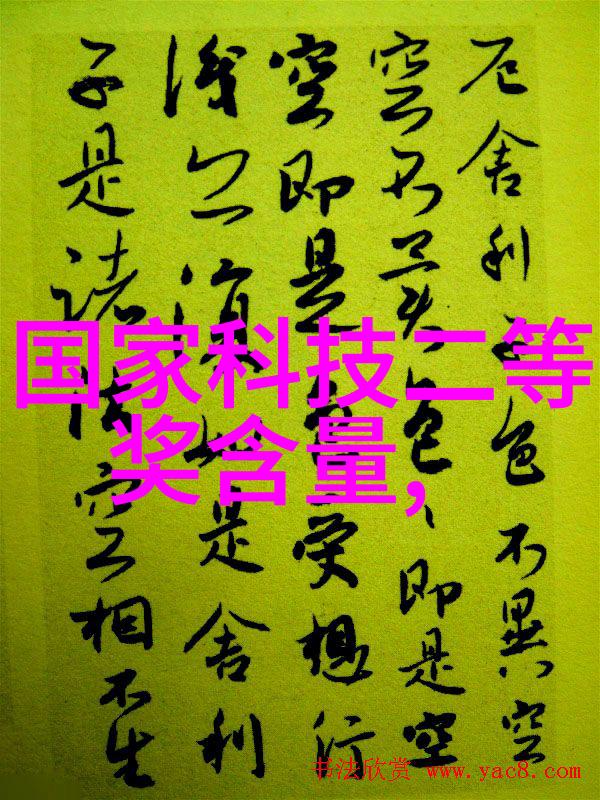 厄舍利子色不異空
空不異色、即是空
空即是色受想行
識亦復如是舍利
子是諸法空相不生
国家科技二等
奖含量,
书法欣赏 www.yac8.com